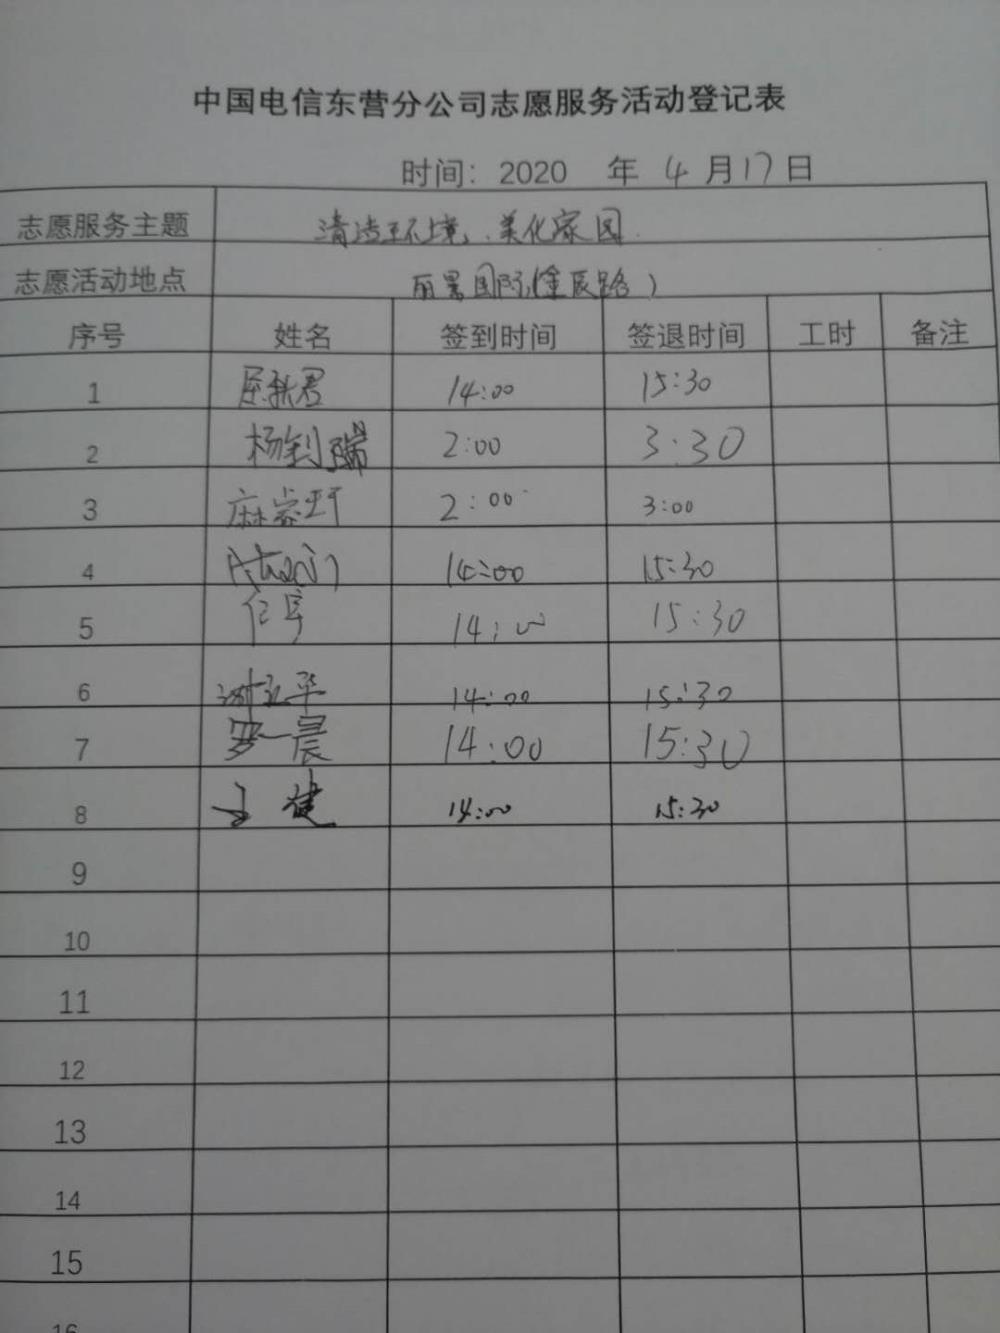 中国电信东营分公司志愿服务活动登记表
时间：2020 年 4 月 17 日
志愿服务主题 清洁环境，美化家园.
志愿活动地点 丽景国际(金辰路)
序号 姓名 签到时间 签退时间 工时 备注
1 14:00 15:30
2 杨钊瑞 2:00 3:30
3 2:00 3:00
4 14:00 15:30
5 14:00 15:30
6 14:00 15:30
7 罗一晨 14:00 15:30
8 王健 14:00 15:30
9
10
11
12
13
14
15
16